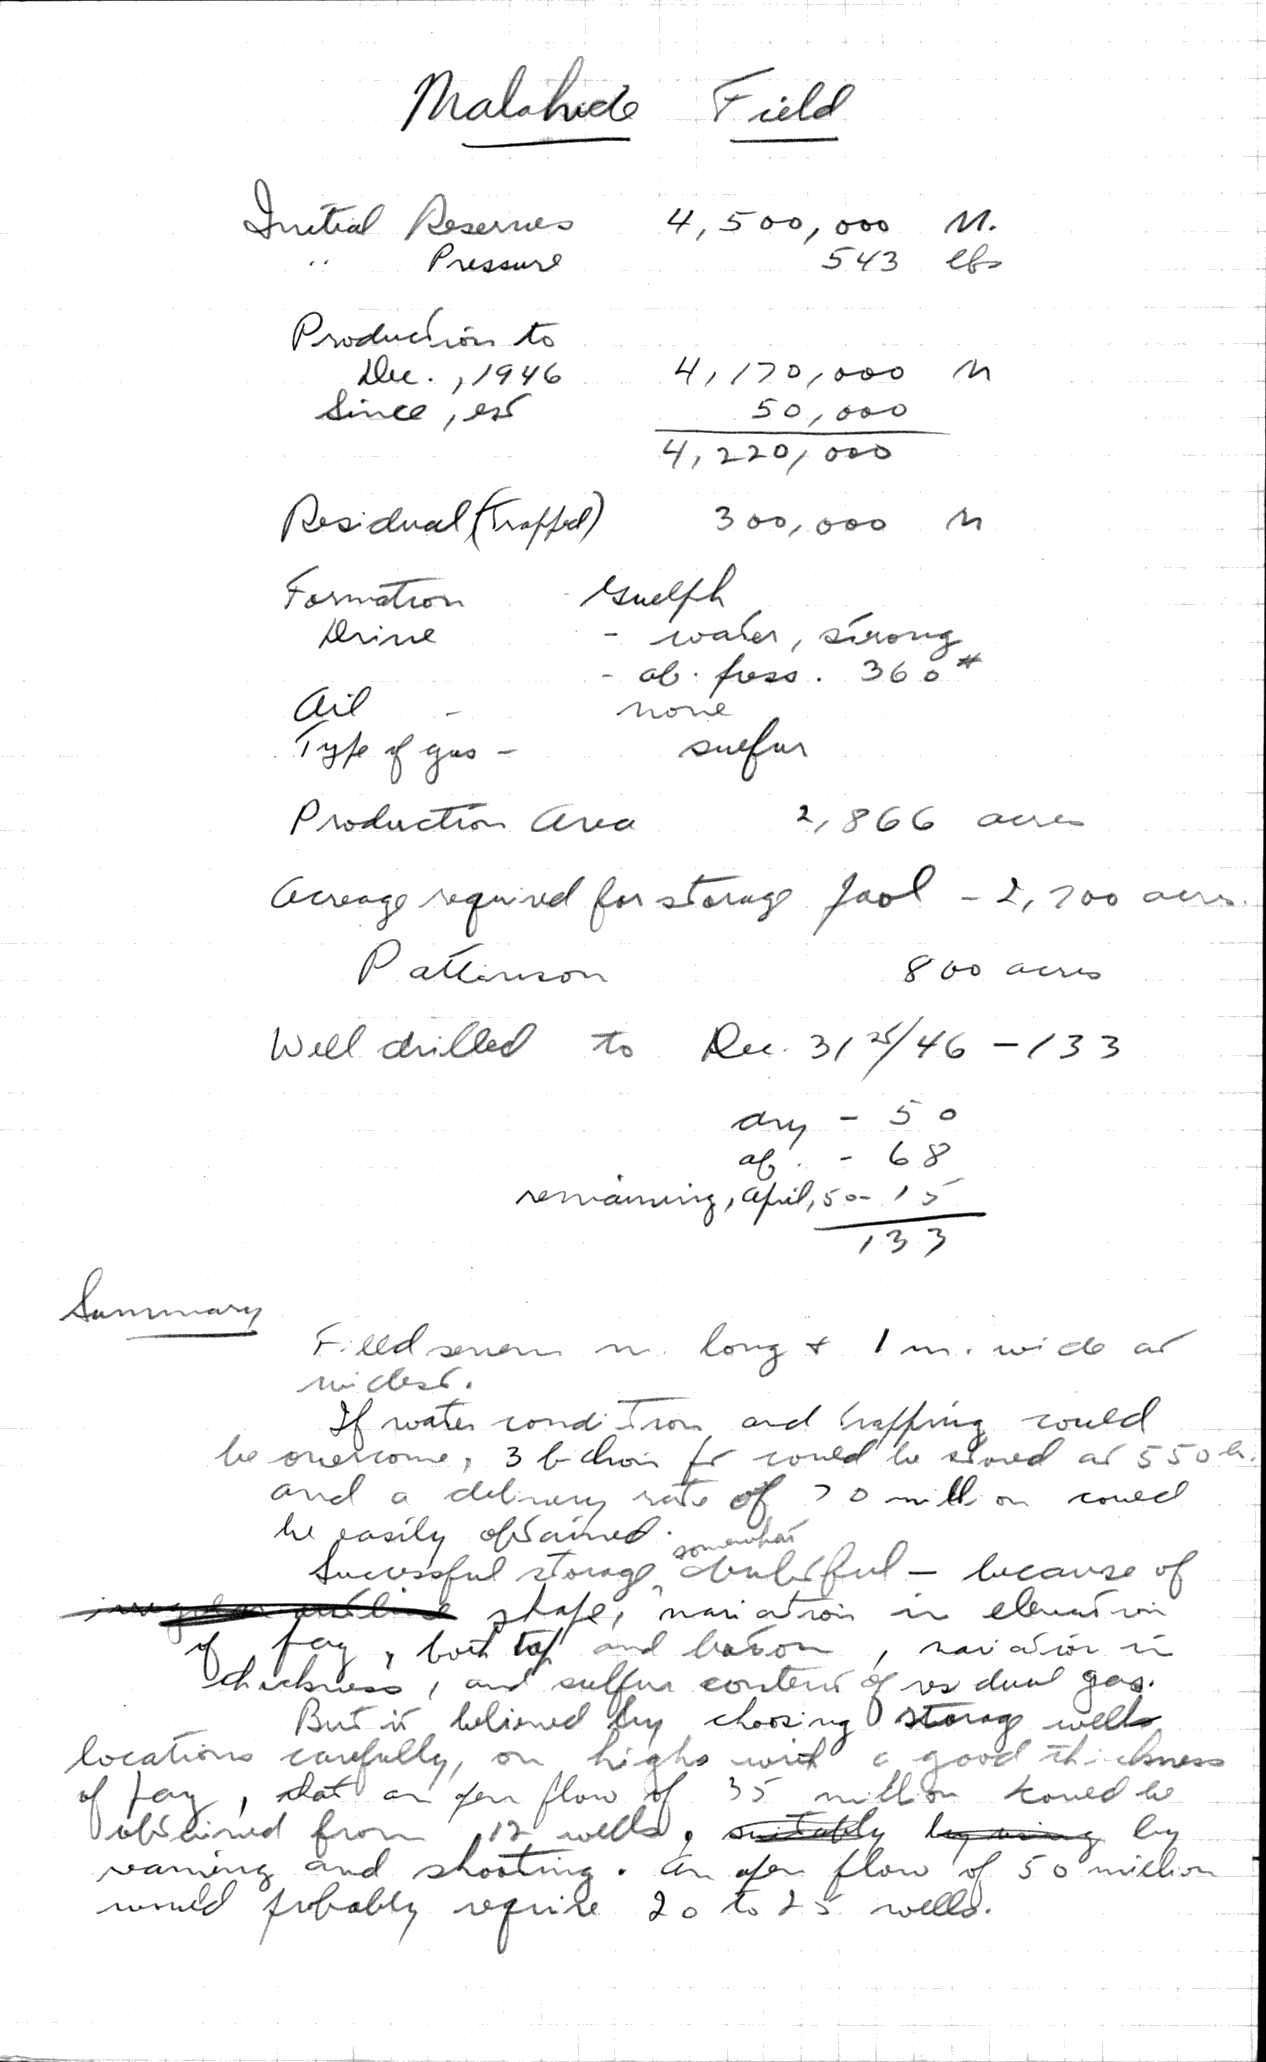 Malahide Field
Initial Reserves 4,500,000 M.
" Pressure 543 lbs
Production to
Dec., 1946 4,170,000 M
Since, est 50,000
4,220,000
Residual (Trapped) 300,000 M
Formation Guelph
Drive - water, strong
- ab. press. 360#
Oil - none
Type of gas - sulfur
Production Area 2,866 acres
Acreage required for storage pool - 2,700 acres.
Pattinson 800 acres
Well drilled to Dec. 31st/46 - 133
dry - 50
ab. - 68
remaining, April, 50 - 15
133
Summary
Field seven m. long & 1 m. wide at
widest.
If water condition and trapping could
be overcome, 3 b could be stored at 550
and a delivery rate of 70 million could
be easily obtained.
Successful storage somewhat doubtful - because of
irregular outline shape, variation in elevation
of pay, both top and bottom, variation in
thickness, and sulfur content of residual gas.
But it believed by choosing storage wells
locations carefully, on highs with a good thickness
of pay, that an open flow of 35 million could be
obtained from 12 wells, suitably by using by
reaming and shooting. An open flow of 50 million
would probably require 20 to 25 wells.